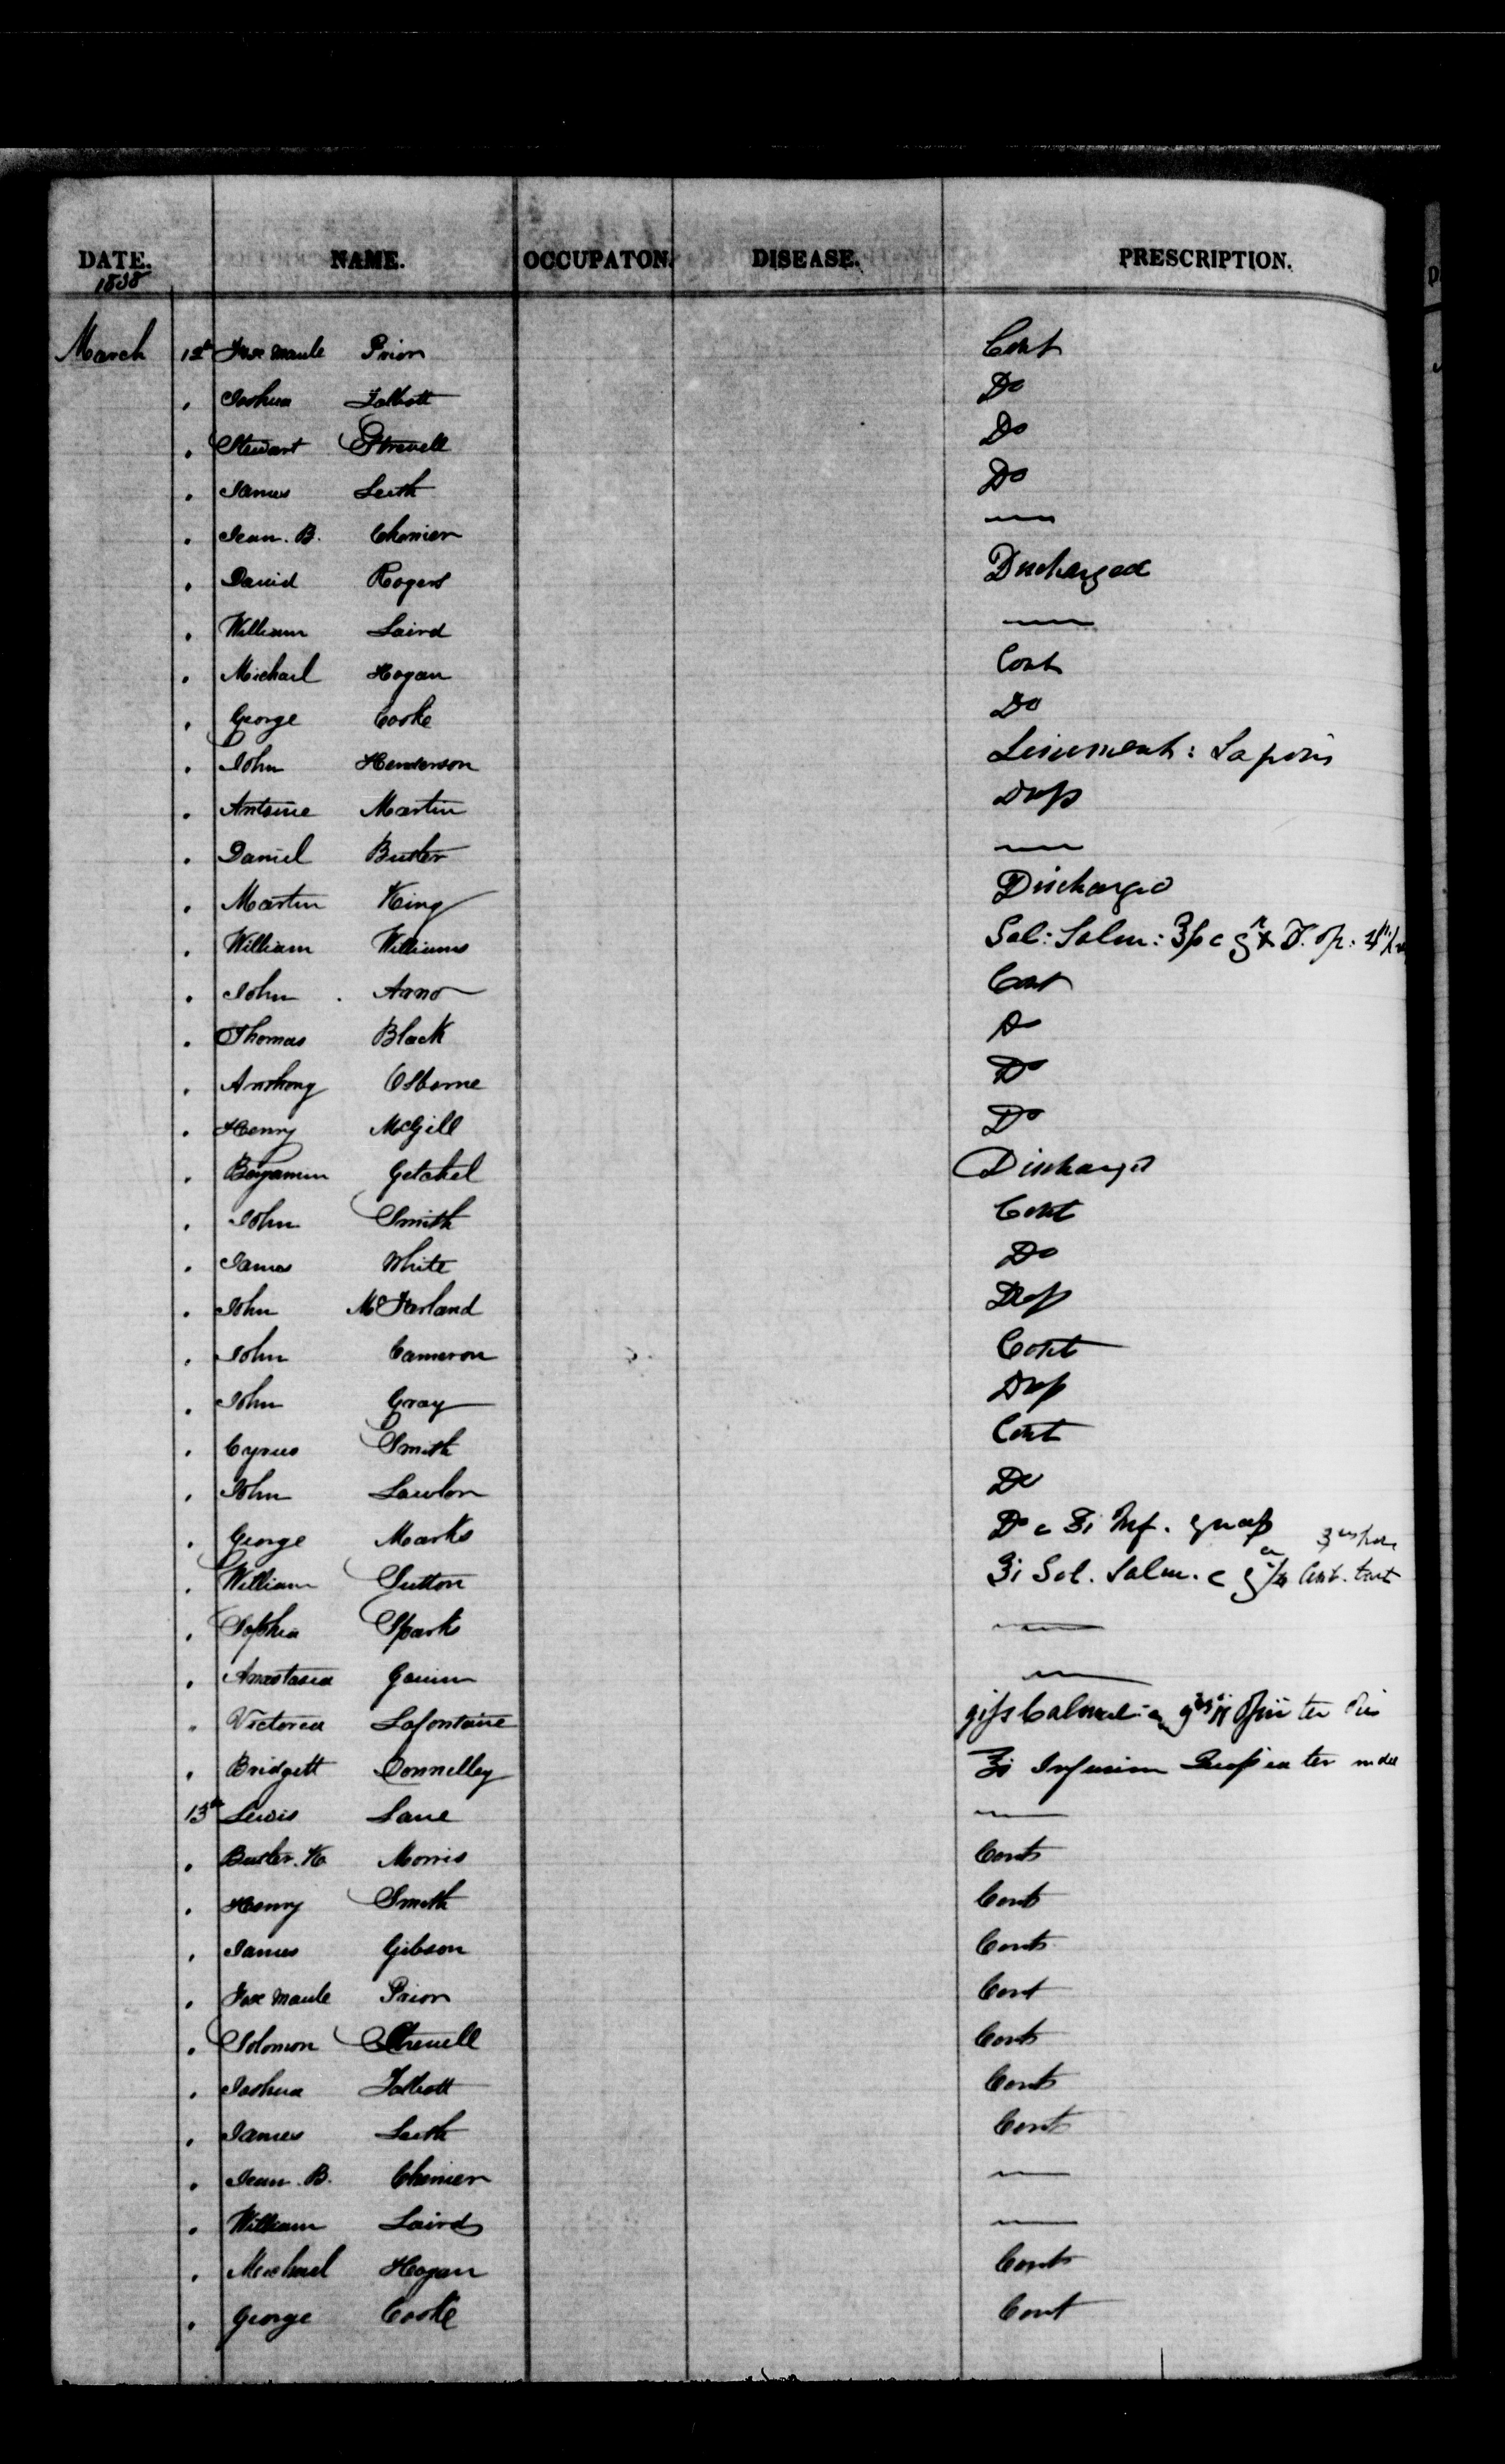 DATE. NAME. OCCUPATON. DISEASE. PRESCRIPTION.
1838
March 12th Fox Maule Prior Cont
" Joshua Talbott Do
" Stewart Strevell Do
" James Leith Do
" Jean. B. Chenier —
" David Rogers Discharged
" William Laird —
" Michael Hogan Cont
" George Cooke Do
" John Henderson Liniment: Saponis
" Antoine Martin Drop
" Daniel Butler —
" Martin King Discharged
" William Williams Sol: Salin:
" John Arno Cont
" Thomas Black Do
" Anthony Osborne Do
" Henry McGill Do
" Benjamin Getchel Discharged
" John Smith Cont
" James White Do
" John McFarland Drop
" John Cameron Cont
" John Gray Drop
" Cyrus Smith Cont
" John Lawlor Do
" George Marks Do c ʒi Inf.
" William Sutton ʒi Sol. Salin. c Ant. tart
" Sophia Sparks —
" Anastasia —
" Victoria Lafontaine Calomel
" Bridgett Connelley Infusion ter
13th Lewis Lane —
" Butler. K. Morris Cont
" Henry Smith Cont
" James Gibson Cont
" Fox Maule Prior Cont
" Solomon Strevell Cont
" Joshua Talbott Cont
" James Leith Cont
" Jean. B. Chenier —
" William Laird —
" Michael Hogan Cont
" George Cooke Cont